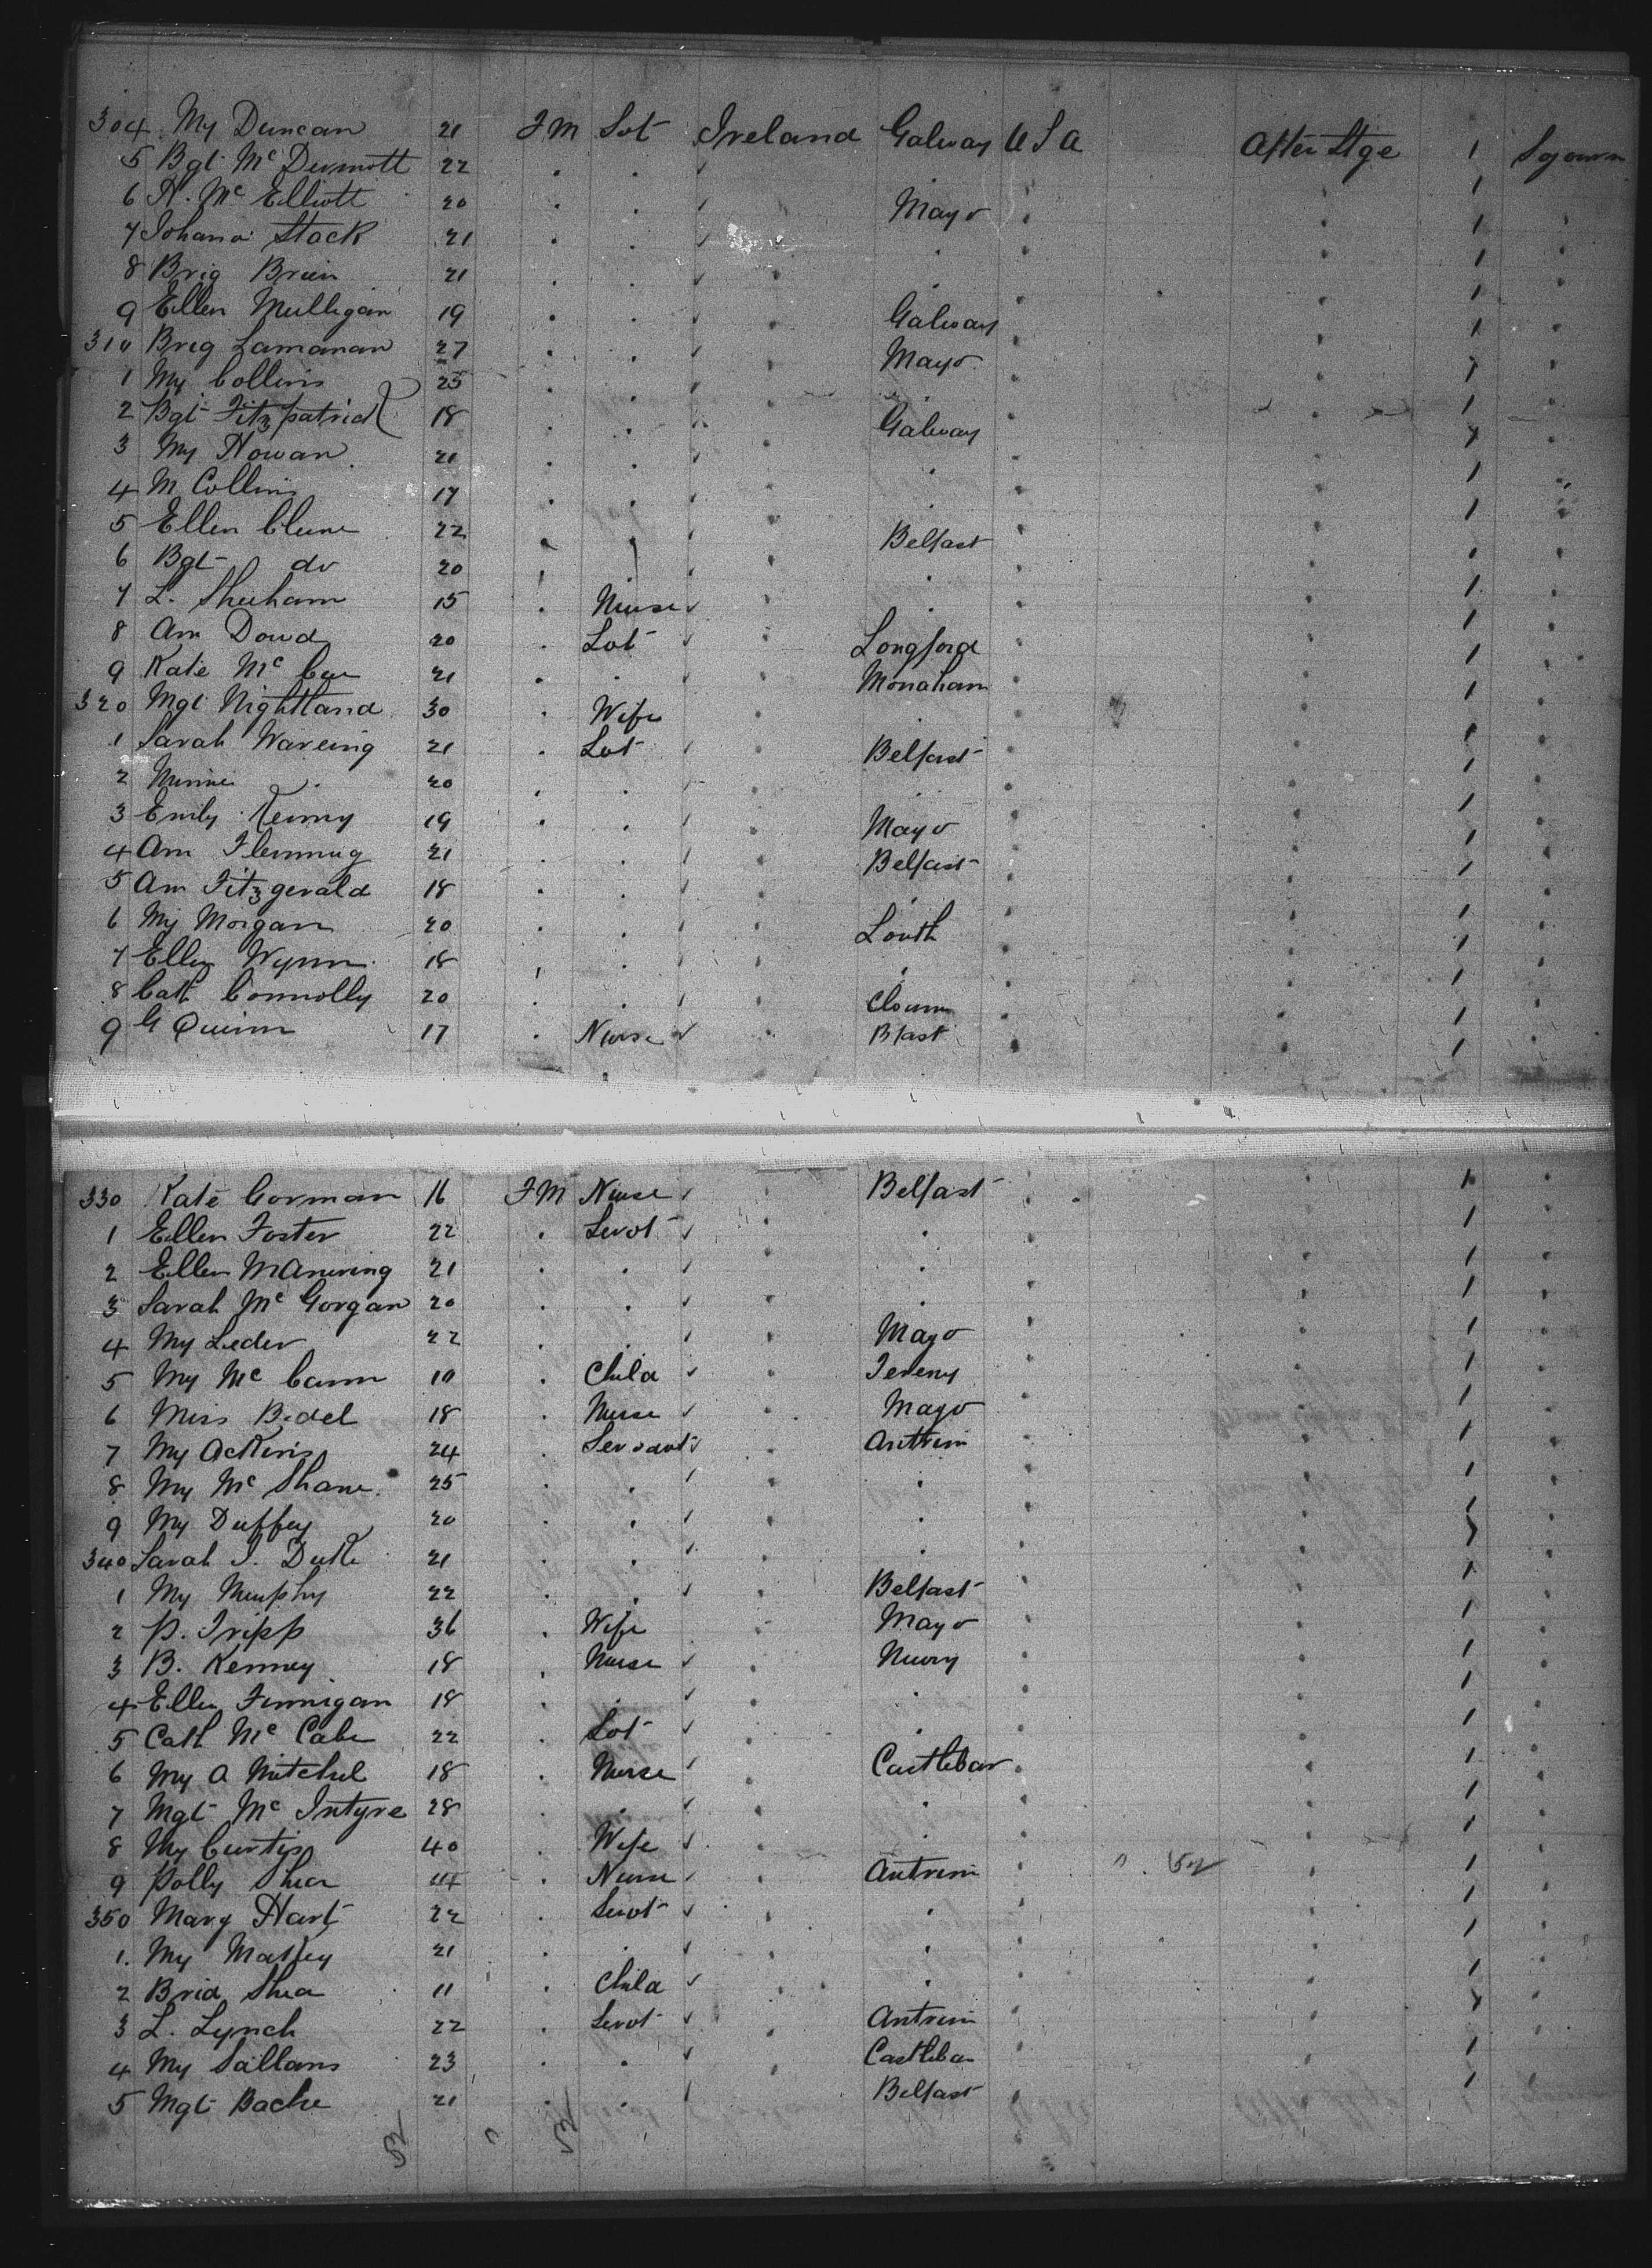 304 My Duncan 21 F M Svt Ireland Galway U S A After Stge 1 Sojourn
5 Bgt McDermott 22 . . 1
6 A. McElliott 20 . . Mayo 1
7 Johana Stack 21 . . 1
8 Brig Brien 21 . . 1
9 Ellen Mulligan 19 . . Galway 1
310 Brig Lamanan 27 . . Mayo 1
1 My Collins 25 . . 1
2 Bgt Fitzpatrick 18 . . Galway 1
3 My Howan 21 . . 1
4 M Collins 17 . . 1
5 Ellen Clune 22 Belfast 1
6 Bgt do 20 1
7 L. Sheeham 15 . Nurse . 1
8 Ann Dowd 20 . Svt Longford 1
9 Kate Mc 21 . . Monaham 1
320 Mgt Nightland 30 . Wife . 1
1 Sarah Wareing 21 . Svt Belfast 1
2 Minnie . 20 . . 1
3 Emily Kenny 19 . . Mayo 1
4 Ann Flemmug 21 . . Belfast 1
5 Ann Fitzgerald 18 . . 1
6 My Morgan 20 . . Louth 1
7 Ellen Wynn 18 . 1
8 Cath Connolly 20 . . 1
9 G Quinn 17 . Nurse Blast 1
330 Kate Gorman 16 F M Nurse Belfast 1
1 Ellen Foster 22 . Servt . 1
2 Ellen Manering 21 . . . 1
3 Sarah McGorgan 20 . . . 1
4 My Leder 22 . . Mayo 1
5 My McCann 10 . Child 1
6 Miss Bedel 18 . Nurse Mayo 1
7 My Ackins 24 . Servant Antrim 1
8 My McShane 25 . . . 1
9 My Duffey 20 . . . 1
340 Sarah J. Duke 21 . . . 1
1 My Murphy 22 . . Belfast 1
2 P. Tripp 36 . Wife Mayo 1
3 B. Kenney 18 . Nurse Newry 1
4 Ellen Finnigan 18 . . . 1
5 Cath McCabe 22 . Svt . 1
6 My A Mitchel 18 . Nurse Castlebar 1
7 Mgt McIntyre 28 . . . 1
8 My Curtis 40 . Wife . 1
9 Polly Shea 14 . Nurse Antrim 1
350 Mary Hart 22 . Servt . 1
1 My Maffey 21 . . . 1
2 Brid Shea 11 . Child . 1
3 L. Lynch 22 . Servt Antrim 1
4 My Sallans 23 . . Castleba 1
5 Mgt Bache 21 . . Belfast 1
52 52